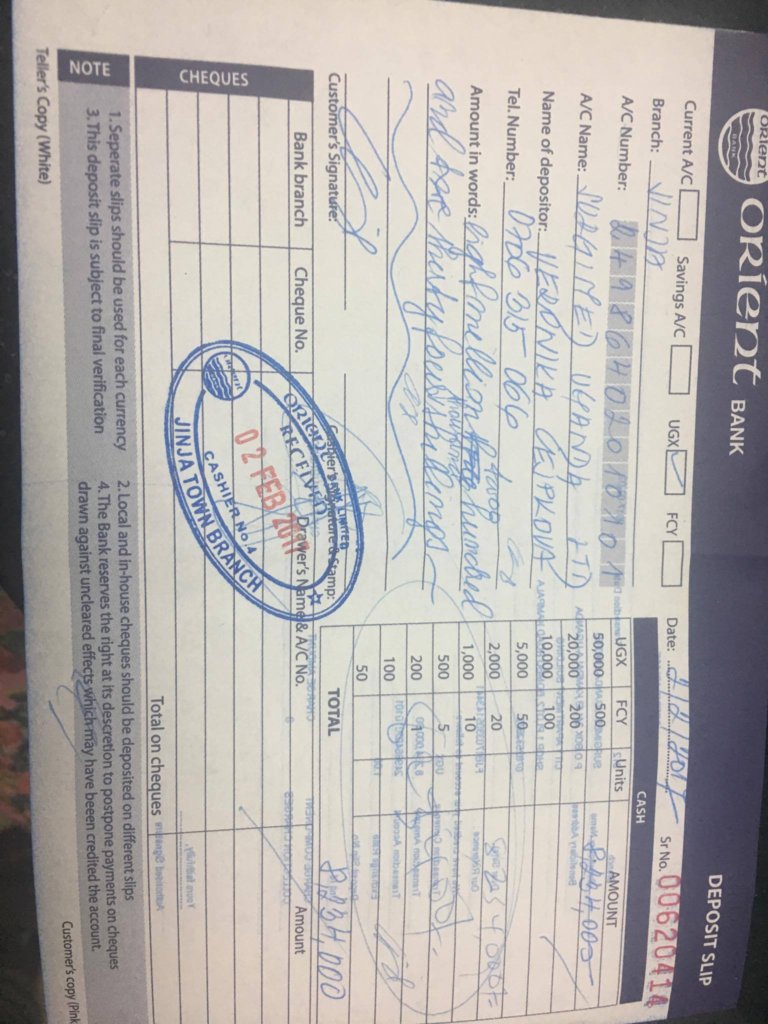 ORIENT BANK
ORIENT BANK
DEPOSIT SLIP
Current A/C Savings A/C UGX FCY Date: 2/2/2017 Sr No. 00620414
Branch: JINJA
A/C Number: 24986402010101
A/C Name: UGANDA LTD
Name of depositor: VERONIKA
Tel. Number: 0706 315 066
Amount in words: Eight million two hundred
thousand
and thirty four shillings
Customer's Signature: Cashier's Signature & Stamp:
CASH
UGX FCY Units AMOUNT
50,000 500 8,234,000
20,000 200
10,000 100
5,000 50
2,000 20
1,000 10
500 5
200 1
100
50
TOTAL 8,234,000
ORIENT BANK LIMITED
RECEIVED
02 FEB 2017
CASHIER No. 4
JINJA TOWN BRANCH
CHEQUES
Bank branch Cheque No. Drawer's Name & A/C No. Amount
Total on cheques
NOTE
1. Seperate slips should be used for each currency
2. Local and in-house cheques should be deposited on different slips
3. This deposit slip is subject to final verification
4. The Bank reserves the right at its descretion to postpone payments on cheques
drawn against uncleared effects which may have beeen credited the account.
Teller's Copy (White) Customer's copy (Pink